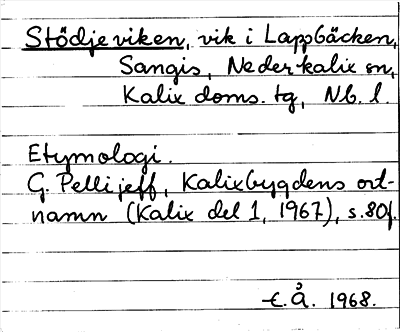 Stödjeviken, vik i Lappbäcken,
Sangis, Nederkalix sn,
Kalix doms. tg, Nb. l.
Etymologi.
G. Pellijeff, Kalixbygdens ort-
namn (Kalix del 1, 1967), s. 80f.
E.Å. 1968.